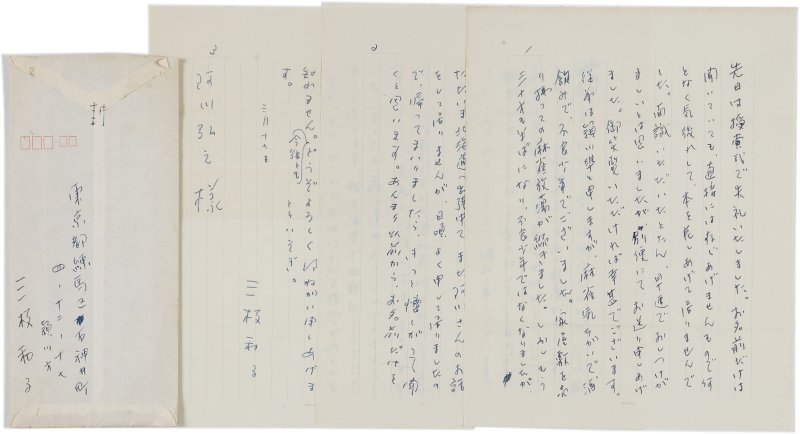 1
先日は授賞式で失礼いたしました。お名前だけは
聞いていても、直接には存じあげませんもので何
となく気後れして、本を差しあげて居りませんで
した。面識いただいたとたん、早速でおしつけが
ましいとは思いましたが別便にてお送り申しあげ
ました。御笑覧いただければ幸甚でございます。
従弟は穎川 と申しますが、麻雀気ちがいで、酒
飲みで、不良少年でございました。家屋敷を
り揃っての麻雀放蕩が続きました。しかしもう
三十才も半ばになり、不良少年ではなくなりましたが、
2
ただいま北海道へ出張中で まだ阿川さんのお話
をして居りませんが、日頃よく申して居りましたの
で、帰ってまいりましたら、きっと 懐しがって聞
くと思います。あんまり以前から、お名前だけを
3
知れません。どうぞよろしくおねがい申しあげま
す。
今後とも
とりいそぎ。
三月十六日
三枝和子
阿川弘之様
封
東京都練馬区石神井町
四ノ十二ノ十七
穎川方
三枝和子